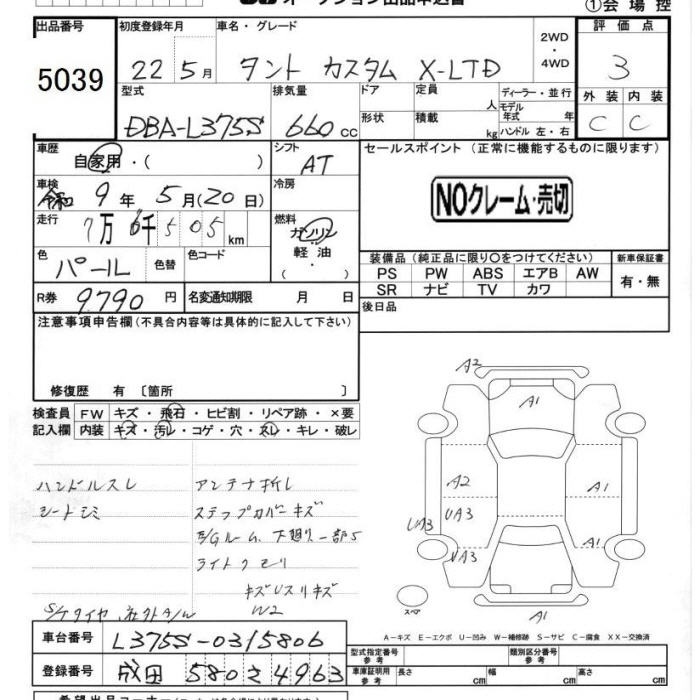 オークション出品申込書
①会場控
出品番号 初度登録年月 車名・グレード 2WD・4WD 評価点
5039 22 5月 タント カスタム X-LTD 3
型式 排気量 ドア 定員 人 ディーラー・並行 外装 内装
DBA-L375S 660cc 形状 積載 kg モデル年式 年 ハンドル 左・右 C C
車歴 自家用・( ) シフト AT セールスポイント(正常に機能するものに限ります)
車検 令和 9年 5月(20日) 冷房 NOクレーム・売切
走行 7万6千505km 燃料 ガソリン 軽油・( )
色 パール 色替 色コード 装備品(純正品に限り○をつけてください) 新車保証書
PS PW ABS エアB AW 有・無
SR ナビ TV カワ
R券 9790円 名変通知期限 月 日 後日品
注意事項申告欄(不具合内容等は具体的に記入して下さい)
修復歴 有〔箇所 〕
検査員 FW キズ・飛石・ヒビ割・リペア跡・×要
記入欄 内装 キズ・汚レ・コゲ・穴・スレ・キレ・破レ
ハンドルスレ アンテナ折レ
シートシミ ステップカバーキズ
E/Gルーム、下廻り一部S
ライトクモリ
キズUスリキズ
S/Tタイヤ、社外A/W W2
A2
A1
A2 A1
UA3 UA3
UA3 A1
スペア A1
A-キズ E-エクボ U-凹み W-補修跡 S-サビ C-腐食 XX-交換済
車台番号 L375S-0315806
登録番号 成田 580さ4963
型式指定番号 参考 類別区分番号 参考
車庫証明用 参考 長さ cm 幅 cm 高さ cm